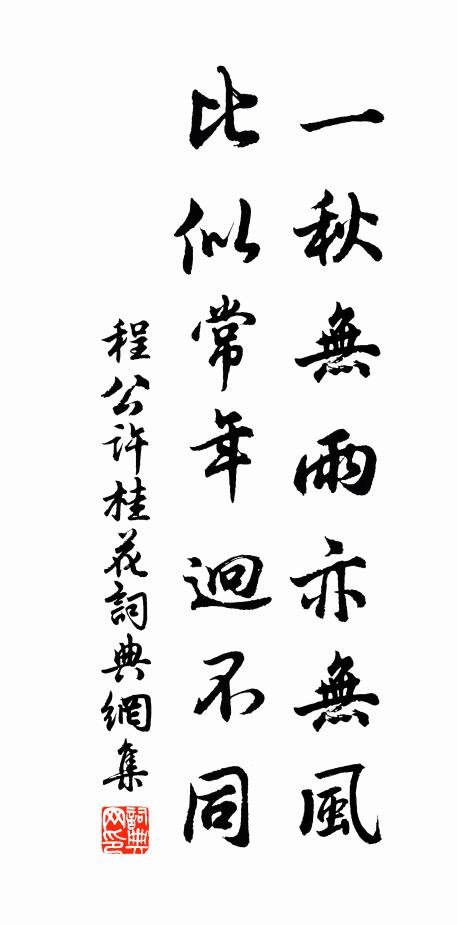 一秋無雨亦無風
比似常年迥不同
程公許桂花詞典網集
詞典網印